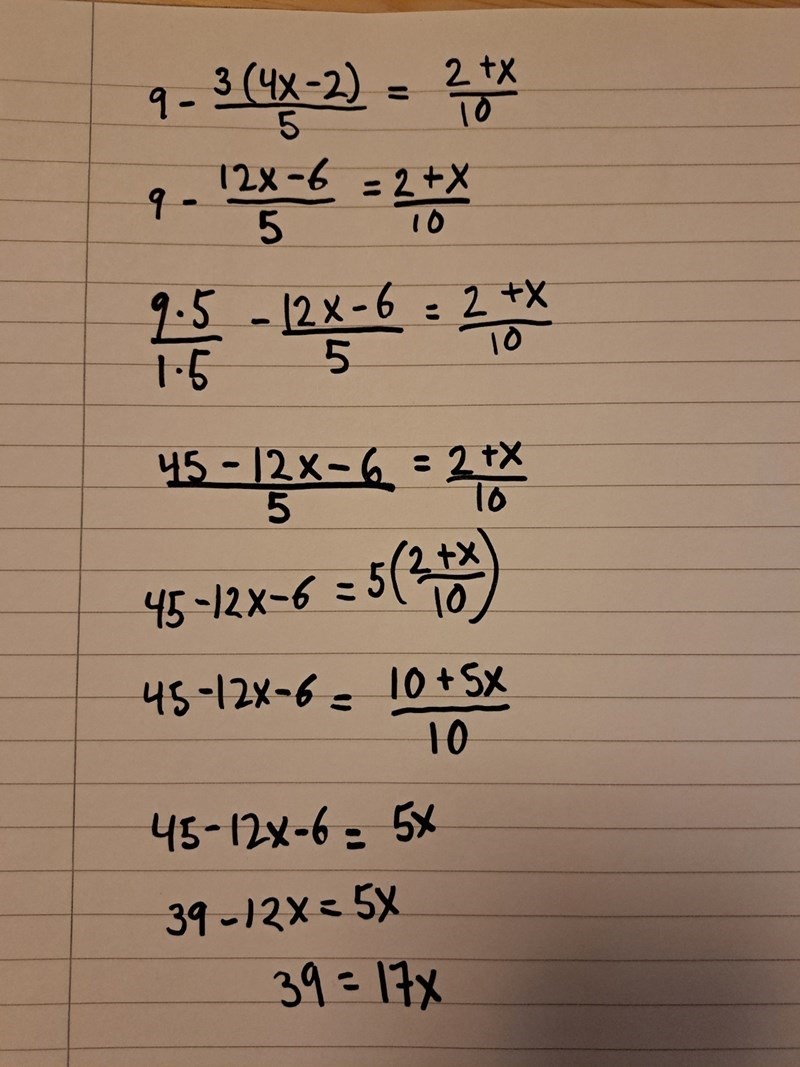 9 - 3(4x-2)/5 = 2+x/10
9 - 12x-6/5 = 2+x/10
9·5/1·5 - 12x-6/5 = 2+x/10
45-12x-6/5 = 2+x/10
45-12x-6 = 5(2+x/10)
45-12x-6 = 10+5x/10
45-12x-6 = 5x
39-12x = 5x
39 = 17x